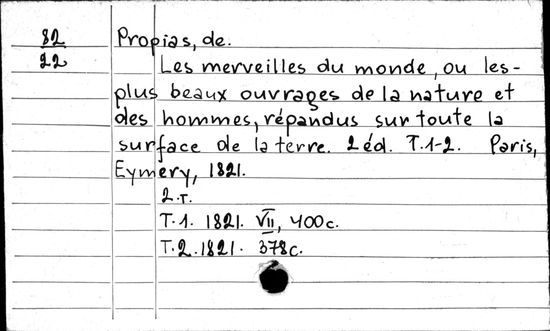 82
22
Propias, de.
Les merveilles du monde, ou les-
plus beaux ouvrages de la nature et
des hommes, répandus sur toute la
surface de la terre. 2 éd. T.1-2. Paris,
Eymery, 1821.
2.т.
T.1. 1821. VII, 400c.
T.2. 1821. 378c.